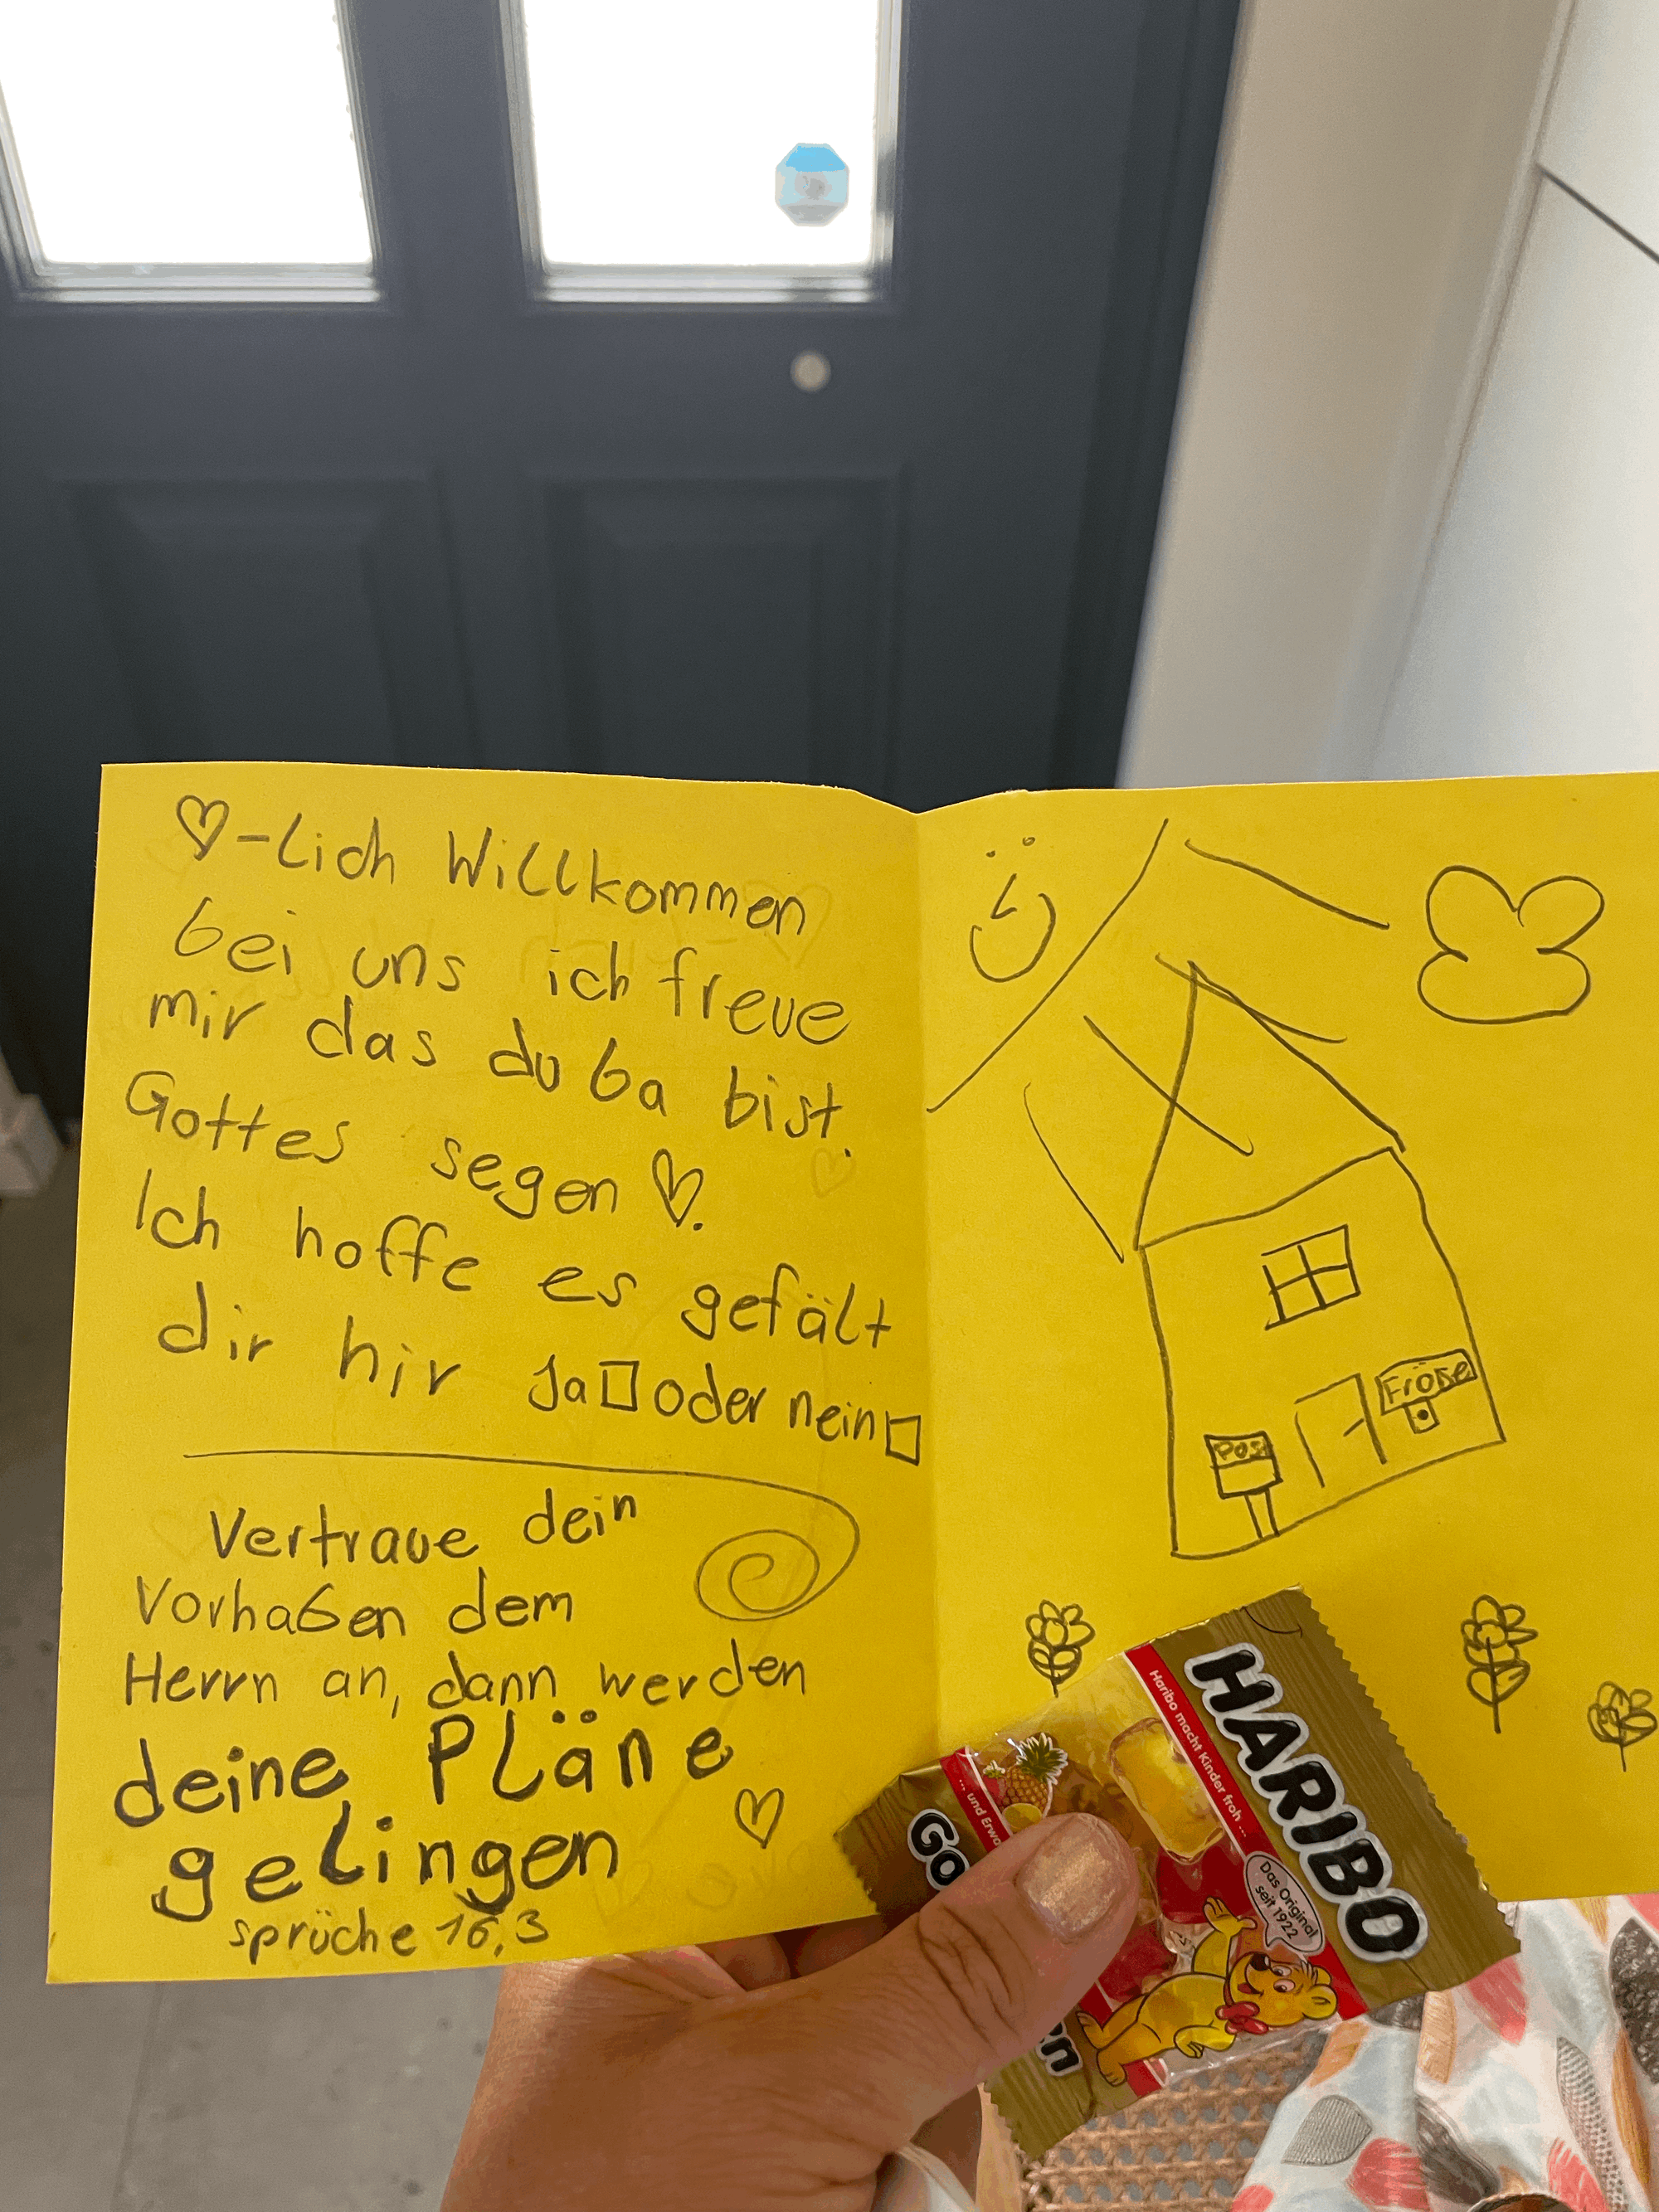 ♡-lich Willkommen
bei uns ich freue
mir das du ba bist.
Gottes segen ♡.
Ich hoffe es gefält
dir hir Ja☐ oder nein☐
Vertraue dein
Vorhaben dem
Herrn an, dann werden
deine Pläne
gelingen
sprüche 16,3
Post
HARIBO
Haribo macht Kinder froh ...
... und Erwa
Das Original
seit 1922
Go
rn